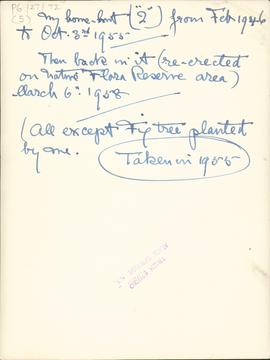 P6/27/72
(5) My home-hut ("2") from Feb 1946
to Oct. 3rd 1955
Then back in it (re-erected
on Native Flora Reserve area)
March 6th 1958
(All except Fig tree planted
by me.
Taken in 1955